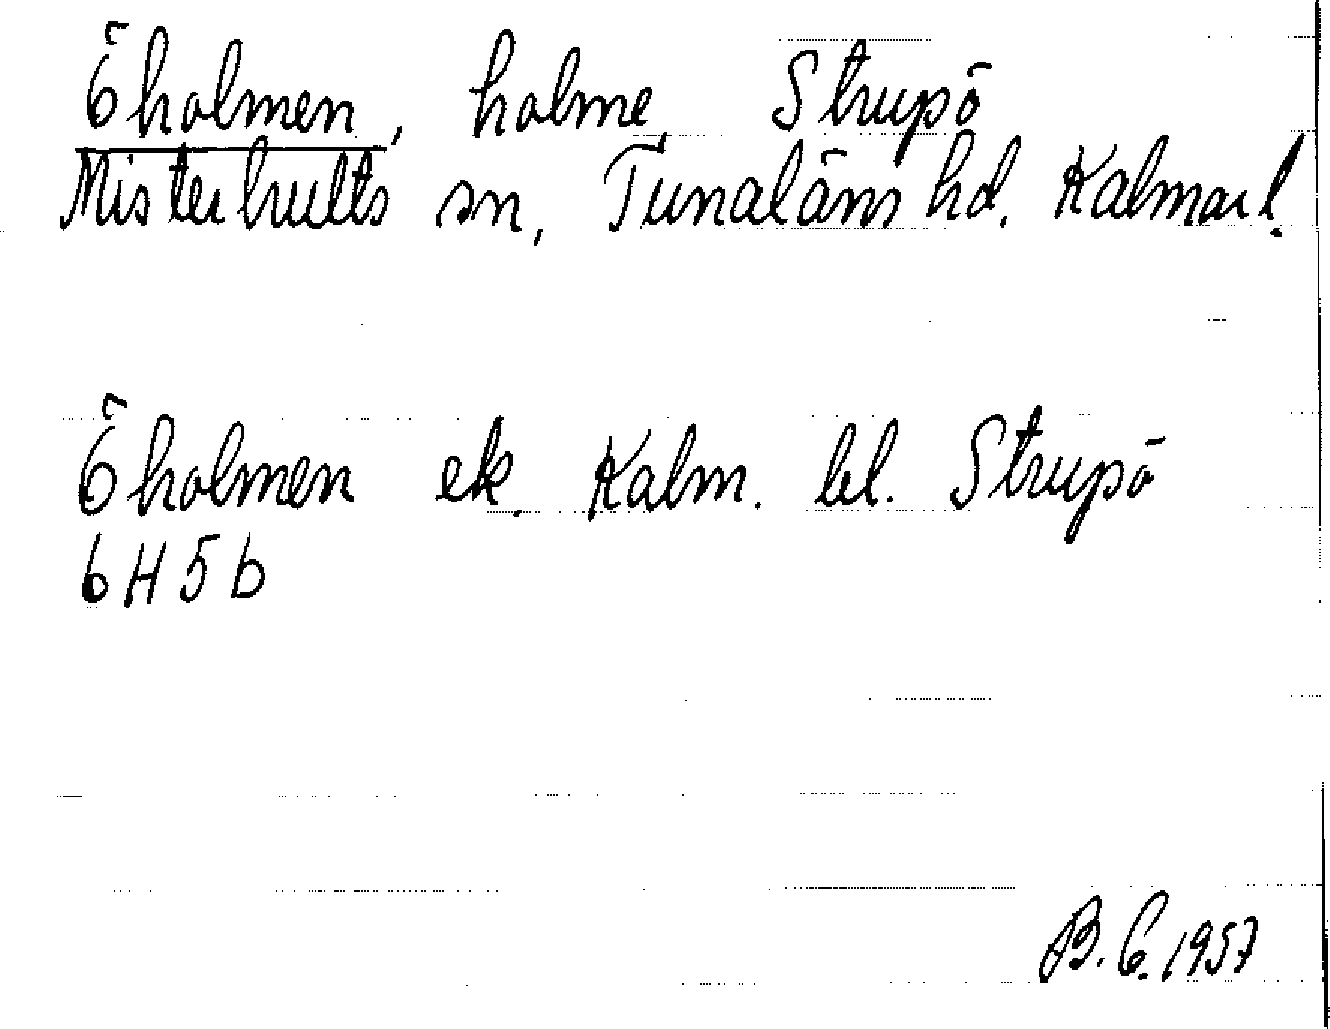 Öholmen, holme, Strupö
Misterhults sn, Tunaläns hd. Kalmar l.
Öholmen ek. Kalm. bl. Strupö
6H5b
B.C. 1957